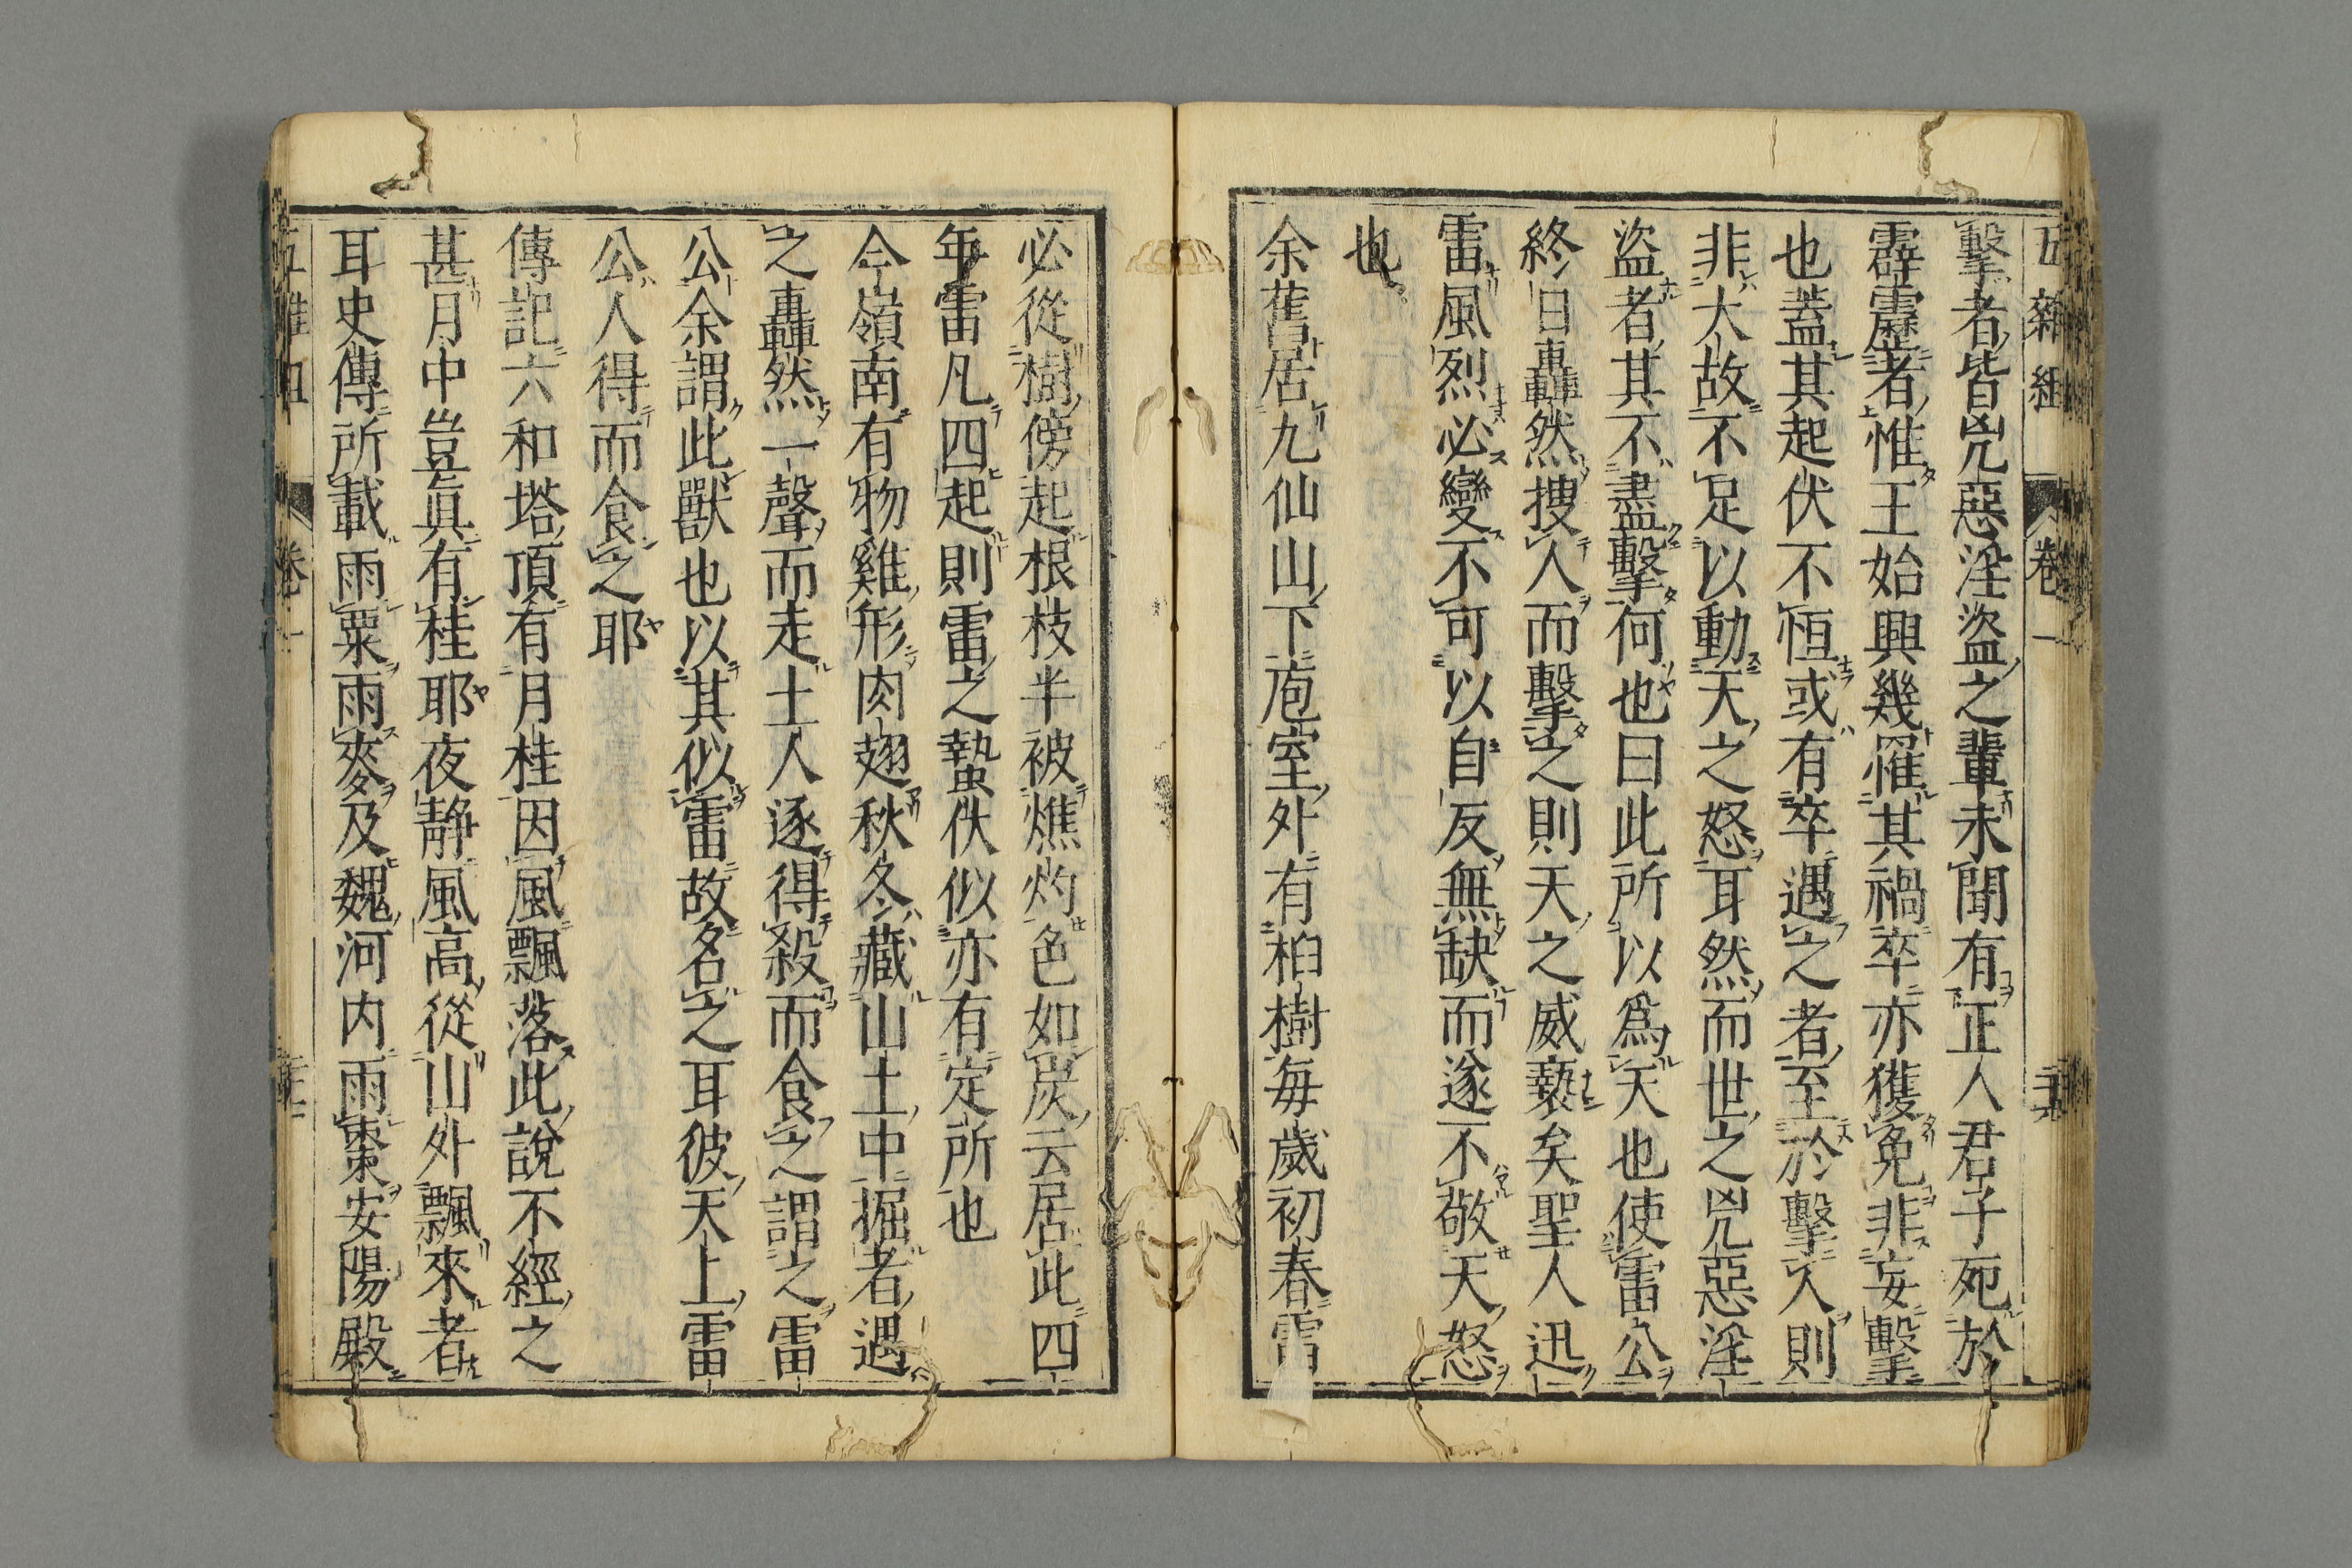 五雜組 卷一
擊者皆兇惡淫盜之輩未聞有正人君子死於
霹靂者惟王始興幾罹其禍卒亦獲免非妄擊
也蓋其起伏不恒或有卒遇之者至於擊人則
非大故不足以動天之怒耳然而世之兇惡淫
盜者其不盡擊何也曰此所以爲天也使雷公
終日轟然搜人而擊之則天之威褻矣聖人迅
雷風烈必變不可以自反無缺而遂不敬天怒
也
余舊居九仙山下庖室外有柏樹每歲初春雷
必從樹傍起根枝半被燋灼色如炭云居此四
年雷凡四起則雷之蟄伏似亦有定所也
今嶺南有物雞形肉翅秋冬藏山土中掘者遇
之轟然一聲而走土人逐得殺而食之謂之雷
公余謂此獸也以其似雷故名之耳彼天上雷
公人得而食之耶
傳記六和塔頂有月桂因風飄落此說不經之
甚月中豈眞有桂耶夜静風高從山外飄來者
耳史傳所載雨粟雨麥及魏河内雨棗安陽殿
卷一